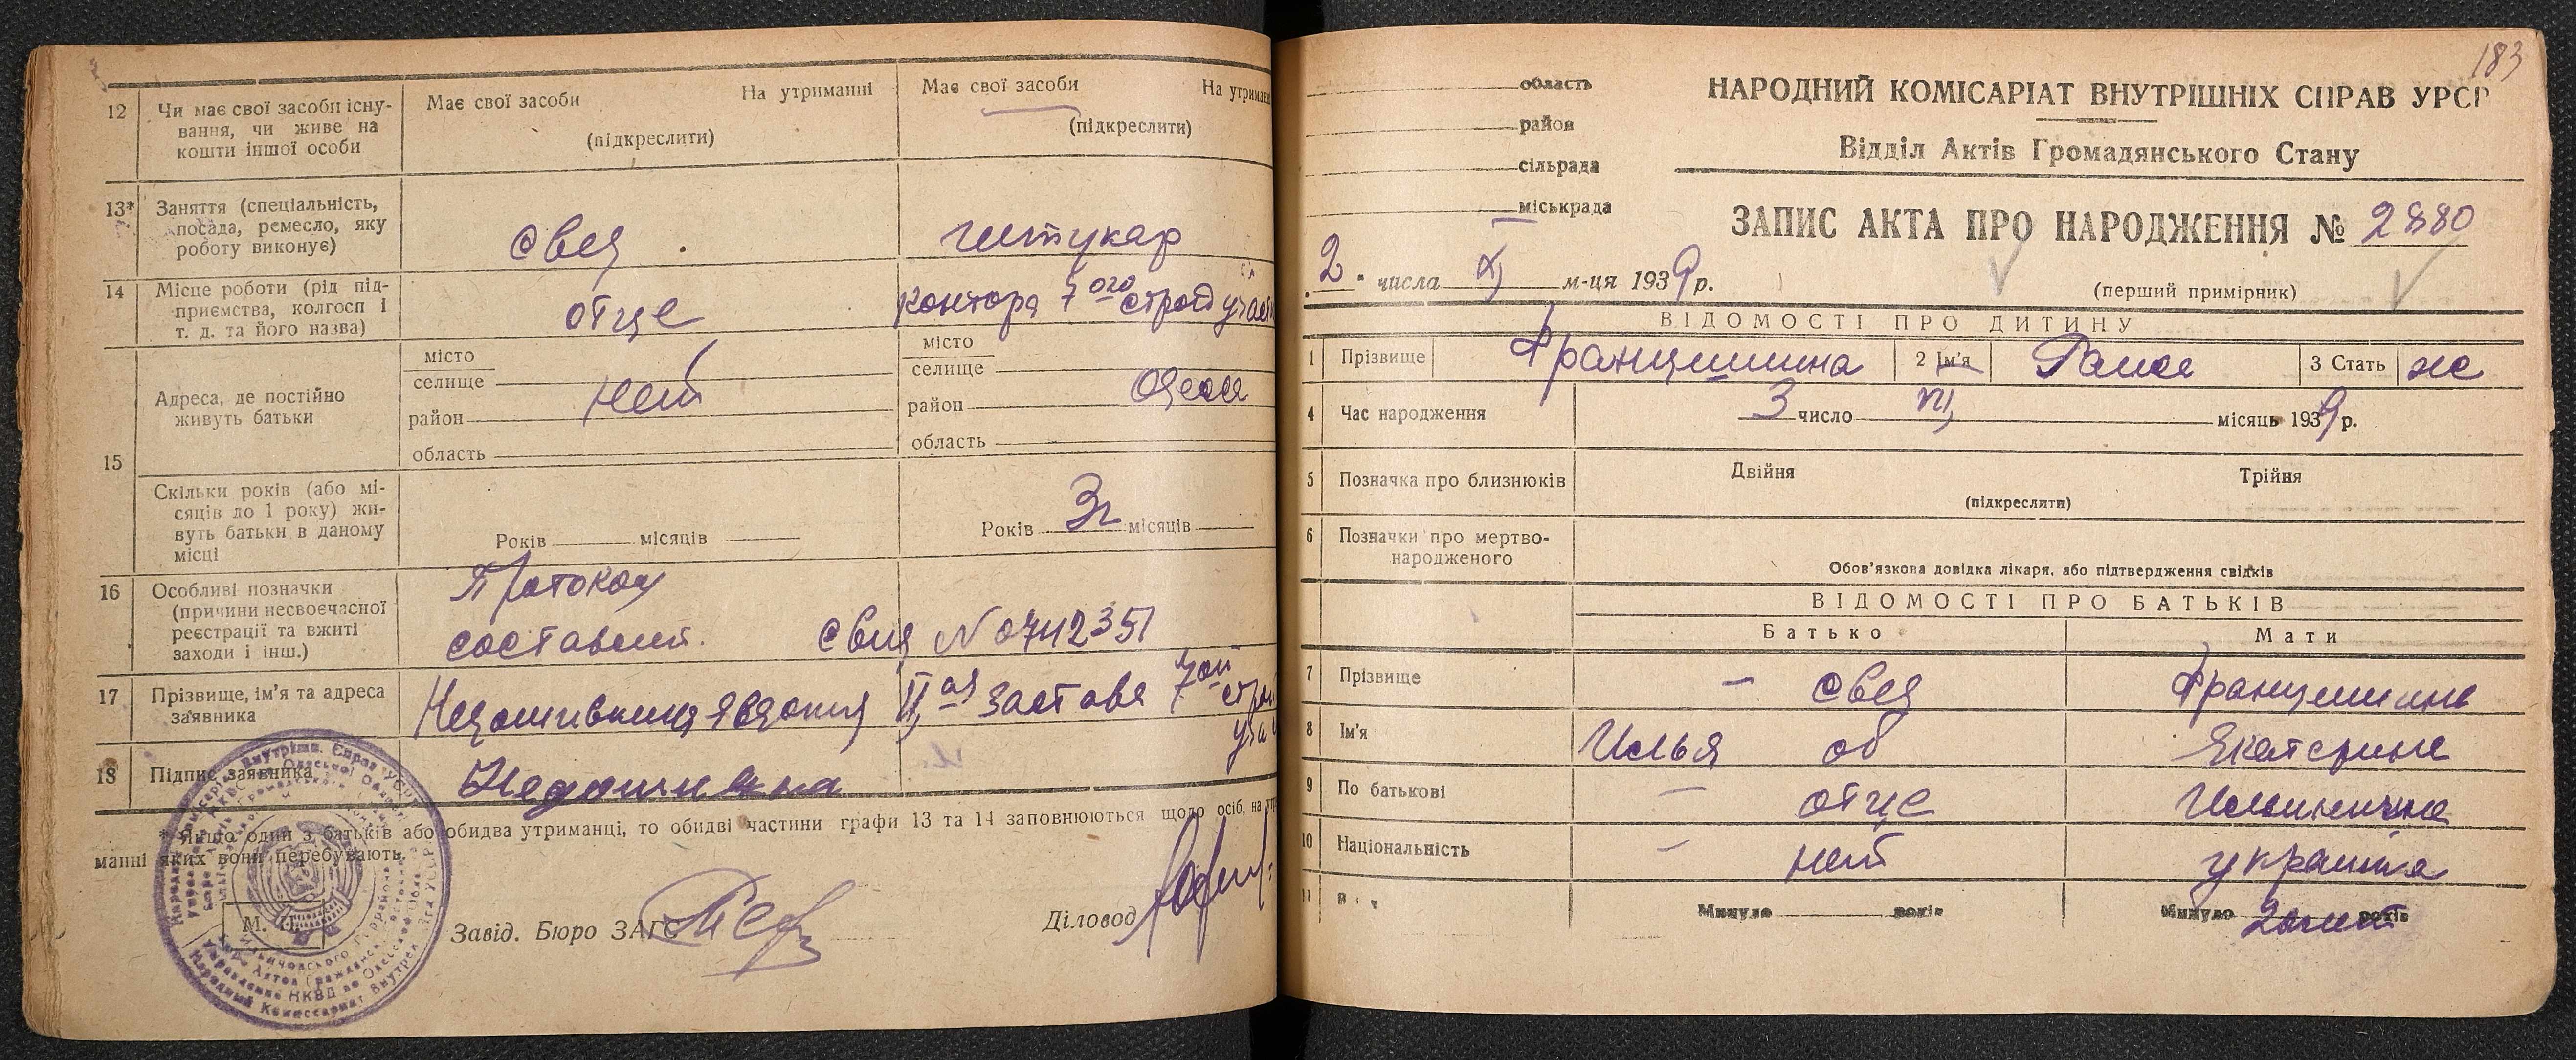 12 Чи має свої засоби існу-
вання, чи живе на
кошти іншої особи
Має свої засоби На утриманні
(підкреслити)
Має свої засоби На утриманні
(підкреслити)
13* Заняття (спеціальність,
посада, ремесло, яку
роботу виконує)
свед.
штукар
14 Місце роботи (рід під-
приємства, колгосп і
т. д. та його назва)
отце
контора 7 ого строй участ
15 Адреса, де постійно
живуть батьки
місто
селище
район
область
нет
місто
селище
район
область
Одесса
Скільки років (або мі-
сяців до 1 року) жи-
вуть батьки в даному
місці
Років місяців
Років 3г місяців
16 Особливі позначки
(причини несвоєчасної
реєстрації та вжиті
заходи і інш.)
Протокол
составлен.
№ 0742351
17 Прізвище, ім'я та адреса
заявника
II ая застава 7 ой строй
18 Підпис заявника
* Якщо один з батьків або обидва утриманці, то обидві частини графи 13 та 14 заповнюються щодо осіб, на
манні яких вони перебувають.
М. П.
Завід. Бюро ЗАГС
Діловод
183
область
район
сільрада
міськрада
НАРОДНИЙ КОМІСАРІАТ ВНУТРІШНІХ СПРАВ УРСР
Відділ Актів Громадянського Стану
ЗАПИС АКТА ПРО НАРОДЖЕННЯ № 2880
2 числа XI м-ця 1939 р.
(перший примірник)
ВІДОМОСТІ ПРО ДИТИНУ
1 Прізвище Францишина 2 Ім'я Раиса 3 Стать ж
4 Час народження 3 число VII місяць 1939 р.
5 Позначка про близнюків Двійня Трійня
(підкреслити)
6 Позначки про мертво-
народженого
Обов'язкова довідка лікаря, або підтвердження свідків
ВІДОМОСТІ ПРО БАТЬКІВ
Батько Мати
7 Прізвище – свед Францишина
8 Ім'я Илья об Екатерина
9 По батькові – отце Ильинична
10 Національність – нет украинка
11 Минуло років Минуло 20 лет років